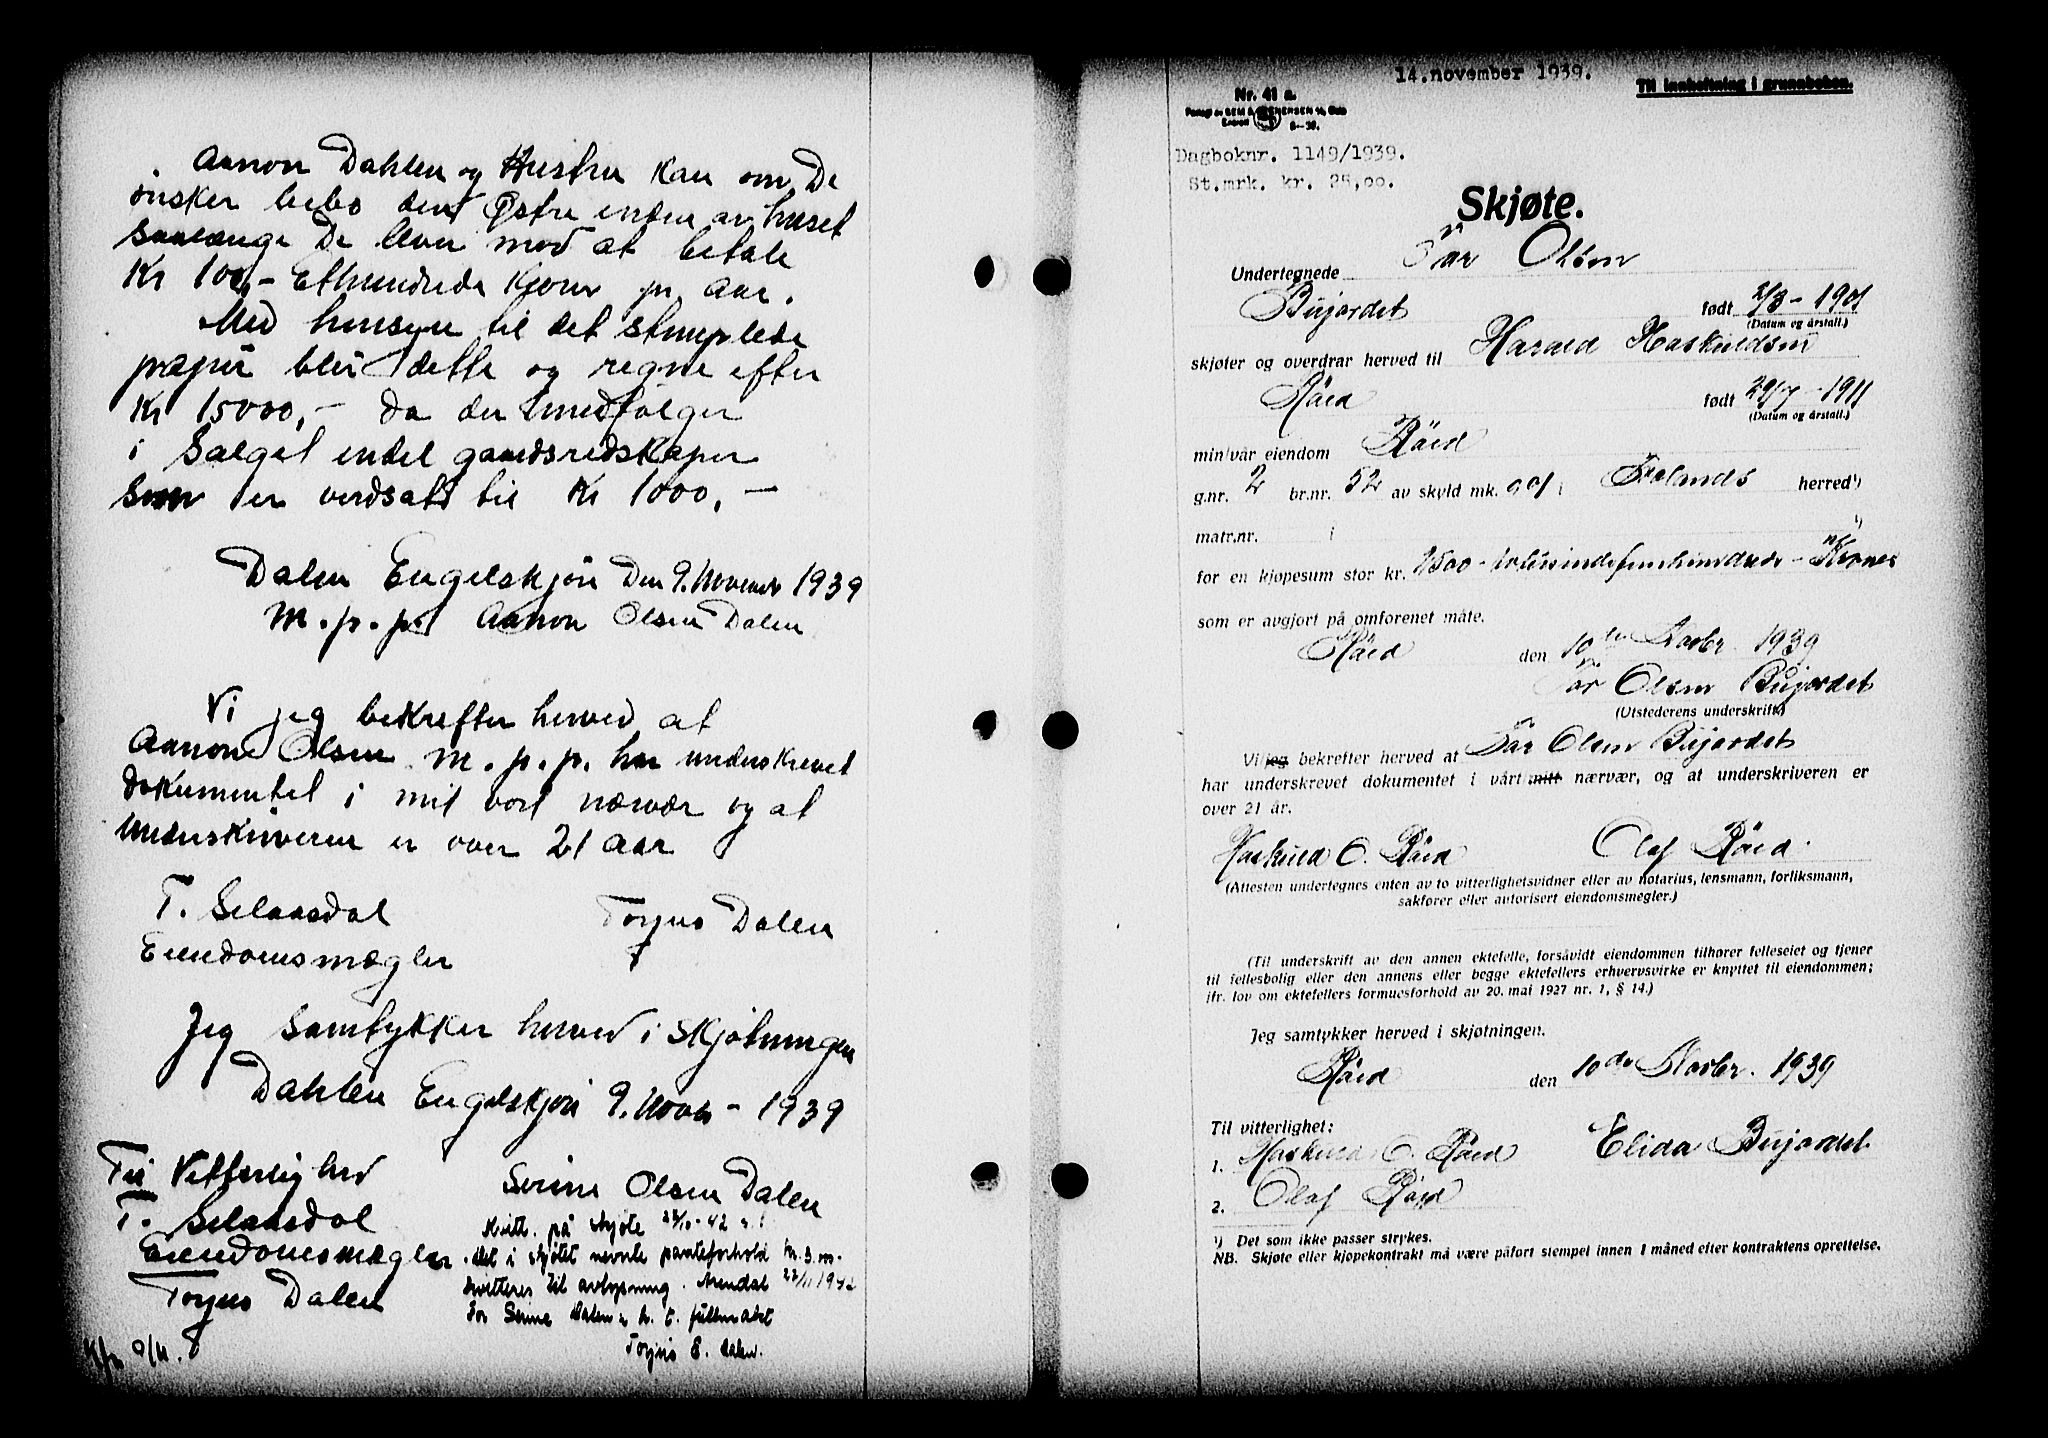 Aanon Dahlen og Hustru kan om De
ønsker bebo den Østre enden av huset
saalænge De lever mod at betale
Kr 100,- Ethundrede Kroner pr Aar.
Med hensyn til det stemplede
papir blir dette og regne efter
Kr 15000,- da der medfølger
i Salget endel gaardsredskaper
som er verdsat til Kr 1000,-
Dalen Engelskjøn Den 9. November 1939
M.p.p. Aanon Olsen Dalen
Vi jeg bekrefter herved at
Aanon Olsen M.p.p. har underskrevet
dokumentet i mit vort nærvær og at
Underskriveren er over 21 Aar
T. Selaasdal Torjus Dalen
Eiendomsmægler
Jeg Samtykker herved i Skjøtningen
Dahlen Engelskjøn 9. Novbr - 1939
Til Vitterlighed
T. Selaasdal
Eiendomsmægler
Torjus Dalen
Serine Olsen Dalen
Kvitt. på skjøte 23/10-42
Det i skjøtet nevnte panteforhold
kvitteres til avlysning. Arendal 22/11 1942
for Serine Dalen e. h. t. fullmakt
Torjus E. Dalen.
14. november 1939.
Til innheftning i grunnboken.
Nr. 41 a.
Dagboknr. 1149/1939.
St.mrk. kr. 25,00.
Skjøte.
Undertegnede Tär Olsen
Bujordet født 2/8 - 1901
(Datum og årstall.)
skjøter og overdrar herved til Harald Haskuldsen
Råed født 29/7 - 1911
(Datum og årstall.)
min/vår eiendom Råed
g.nr. 2 br.nr. 52 av skyld mk. 0,01 i Frolands herred¹)
matr.nr. i ¹)
for en kjøpesum stor kr. 2500 - totusindefemhundrede - Kroner
som er avgjort på omforenet måte.
Råed den 10de Novbr. 1939
Tär Olsen Bujordet
(Utstederens underskrift.)
Vi/jeg bekrefter herved at Tär Olsen Bujordet
har underskrevet dokumentet i vårt mitt nærvær, og at underskriveren er
over 21 år.
Haskuld O. Råed Olaf Råed.
(Attesten undertegnes enten av to vitterlighetsvidner eller av notarius, lensmann, forliksmann,
sakfører eller autorisert eiendomsmegler.)
(Til underskrift av den annen ektefelle, forsåvidt eiendommen tilhører felleseiet og tjener
til fellesbolig eller den annens eller begge ektefellers erhvervsvirke er knyttet til eiendommen;
jfr. lov om ektefellers formuesforhold av 20. mai 1927 nr. 1, § 14.)
Jeg samtykker herved i skjøtningen.
Råed den 10de Novbr. 1939
Til vitterlighet:
1. Haskuld O. Råed Elida Bujordet
2. Olaf Råed
¹) Det som ikke passer strykes.
NB. Skjøte eller kjøpekontrakt må være påført stempel innen 1 måned efter kontraktens oprettelse.